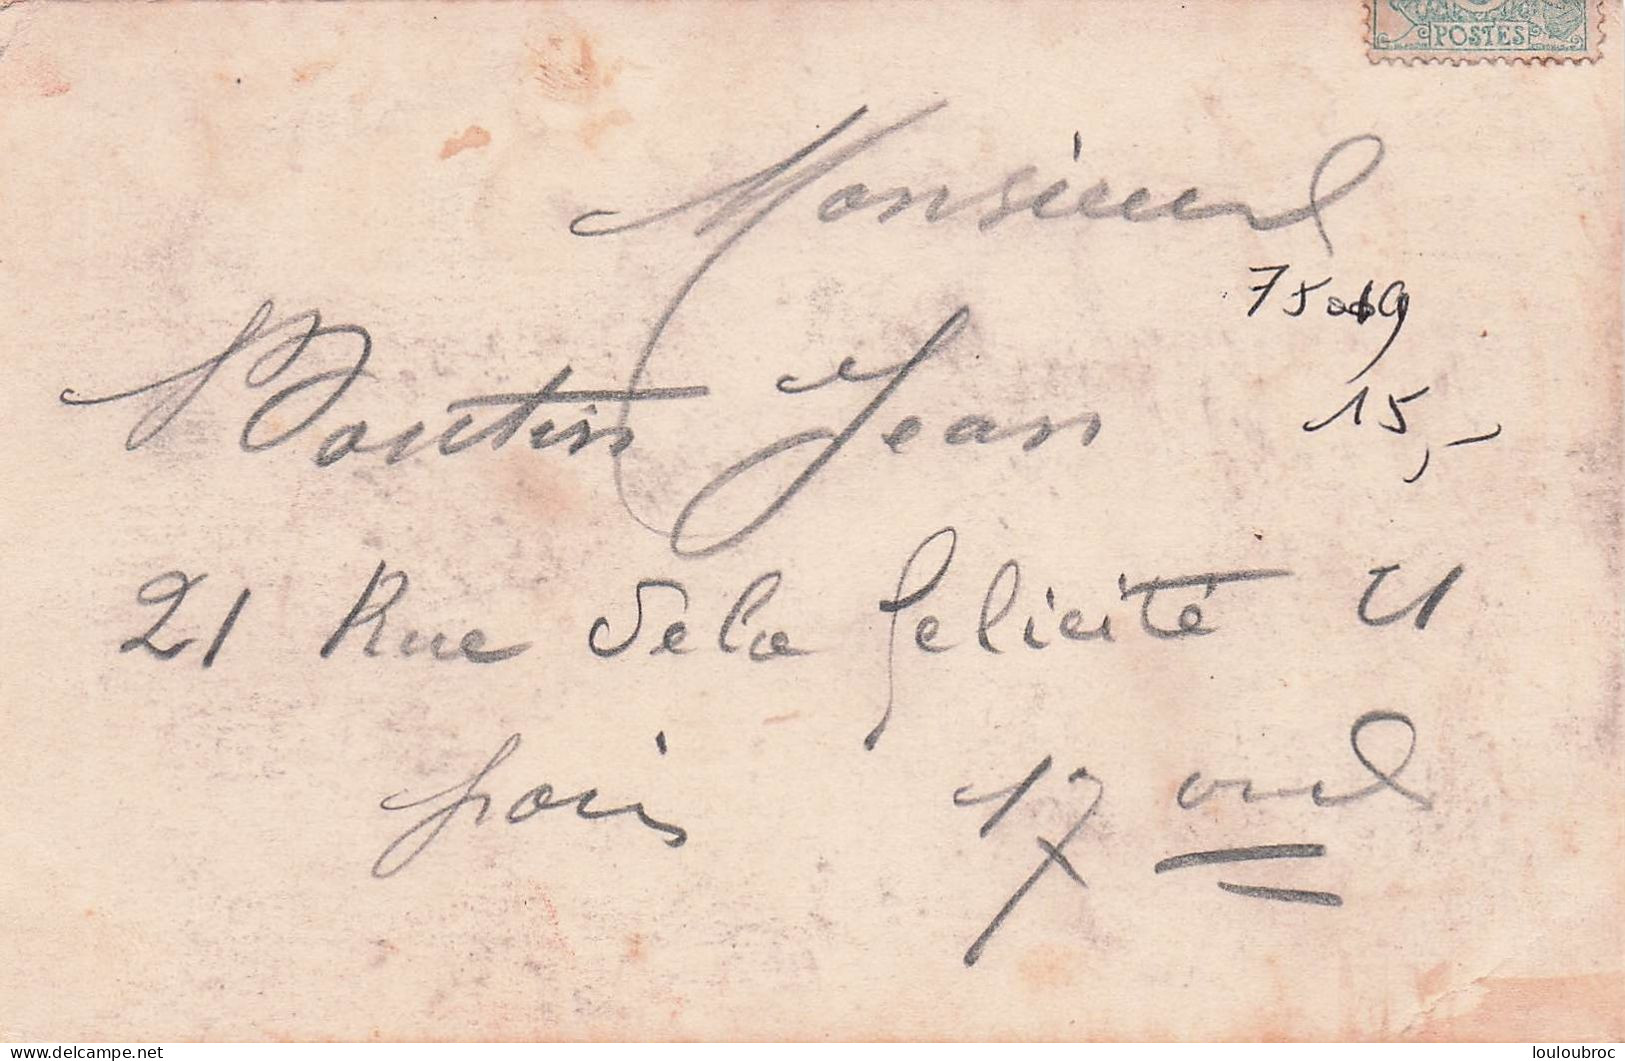 POSTES
Monsieur
75019
Moutin Jean
15,-
21 Rue de la Felicité 21
paris 17 ard
delcampe.net
louloubroc